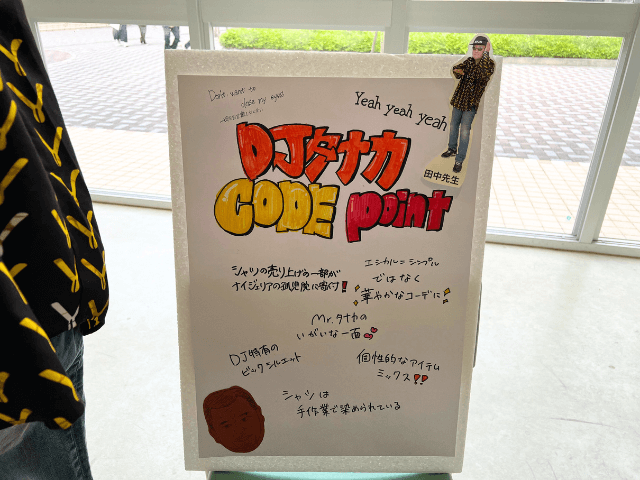 Don't want to
close my eyes
Yeah yeah yeah
田中先生
DJタナカ
CODE point
シャツの売り上げの一部が
ナイジェリアの孤児院に寄付❗
エシカル=シンプル
ではなく
✨華やかなコーデに✨
Mr.タナカの
いがいな一面
DJ特有の
ビックシルエット
個性的なアイテム
ミックス‼
シャツは
手作業で染められている